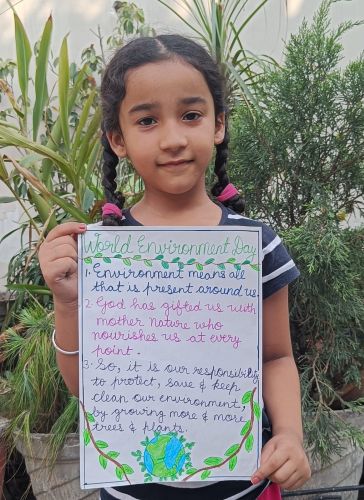 World Environment Day
1. Environment means all
that is present around us.
2. God has gifted us with
mother nature who
nourishes us at every
point.
3. So, it is our responsibility
to protect, save & keep
clean our environment,
by growing more & more
trees & plants.